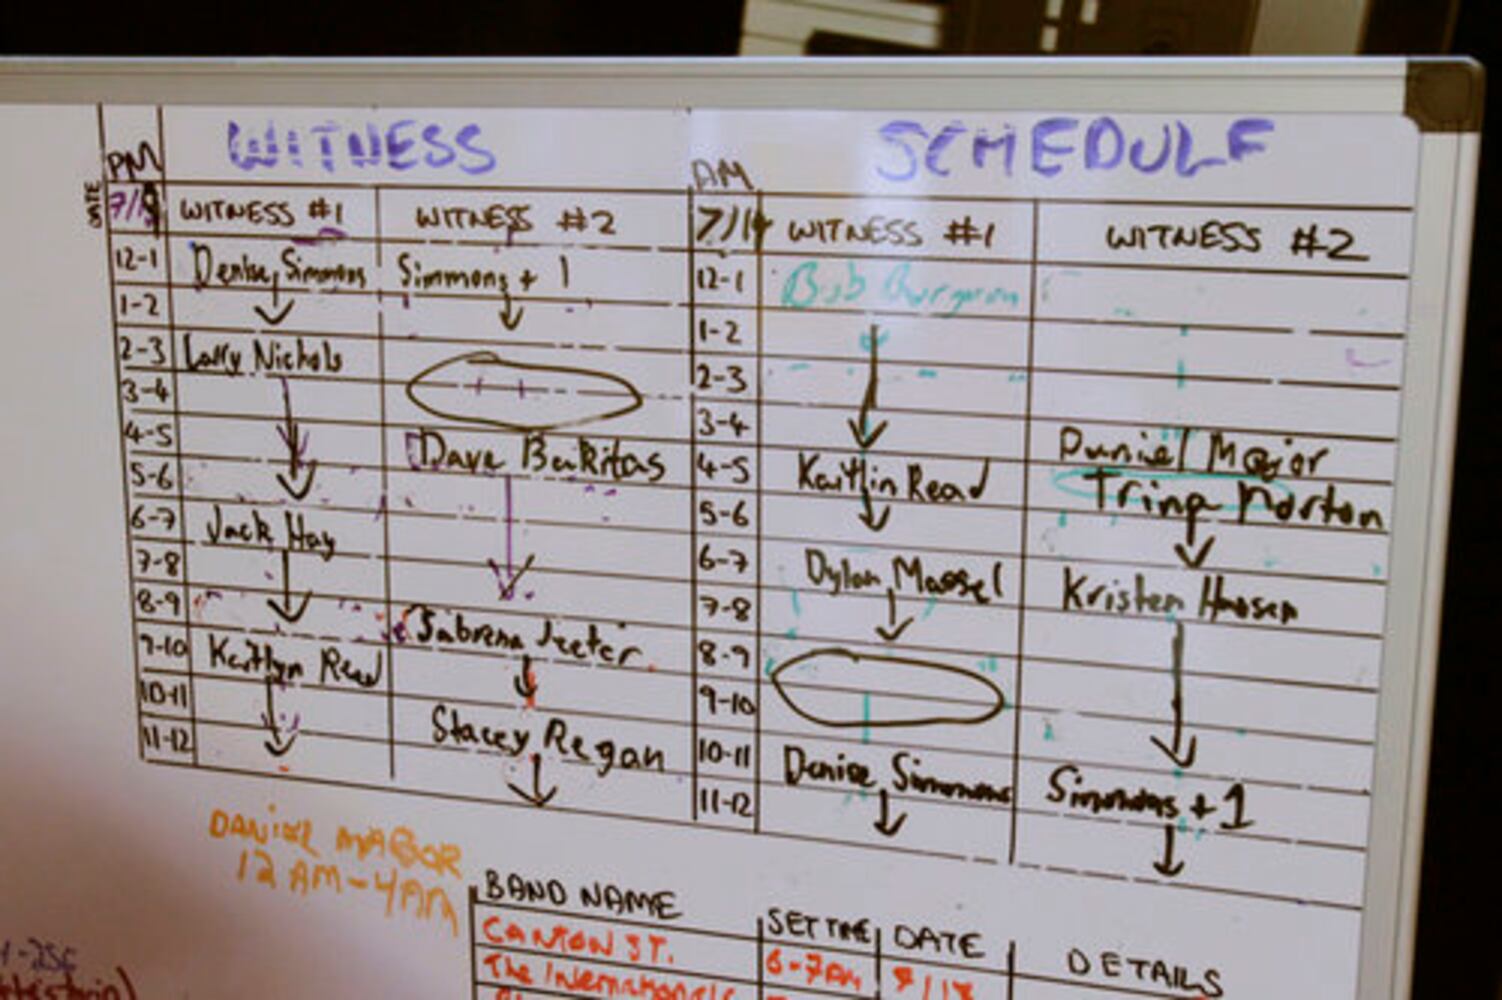 WITNESS SCHEDULE
PM AM
DATE
WITNESS #1 WITNESS #2 7/14 WITNESS #1 WITNESS #2
12-1 Denise Simmons Simmons + 1 12-1 Bob
1-2 1-2
2-3 Larry Nichols 2-3
3-4 3-4
4-5 Dave Bakitas 4-5 Kaitlin Read Daniel Major
5-6 5-6 Trina Morton
6-7 Jack Hay 6-7 Dylan Massel Kristen Hansen
7-8 7-8
8-9 Sabrena Jeeter 8-9
9-10 Kaitlyn Read 9-10
10-11 Stacey Regan 10-11 Denise Simmons Simmons + 1
11-12 11-12
DANIEL MABOR
12 AM - 4AM
BAND NAME SET TIME DATE DETAILS
CANTON ST. 6-7AM
The Internationals